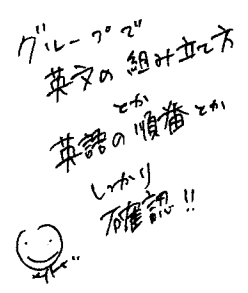 グループで
英文の組み立て方
とか
英語の順番とか
しっかり
確認!!